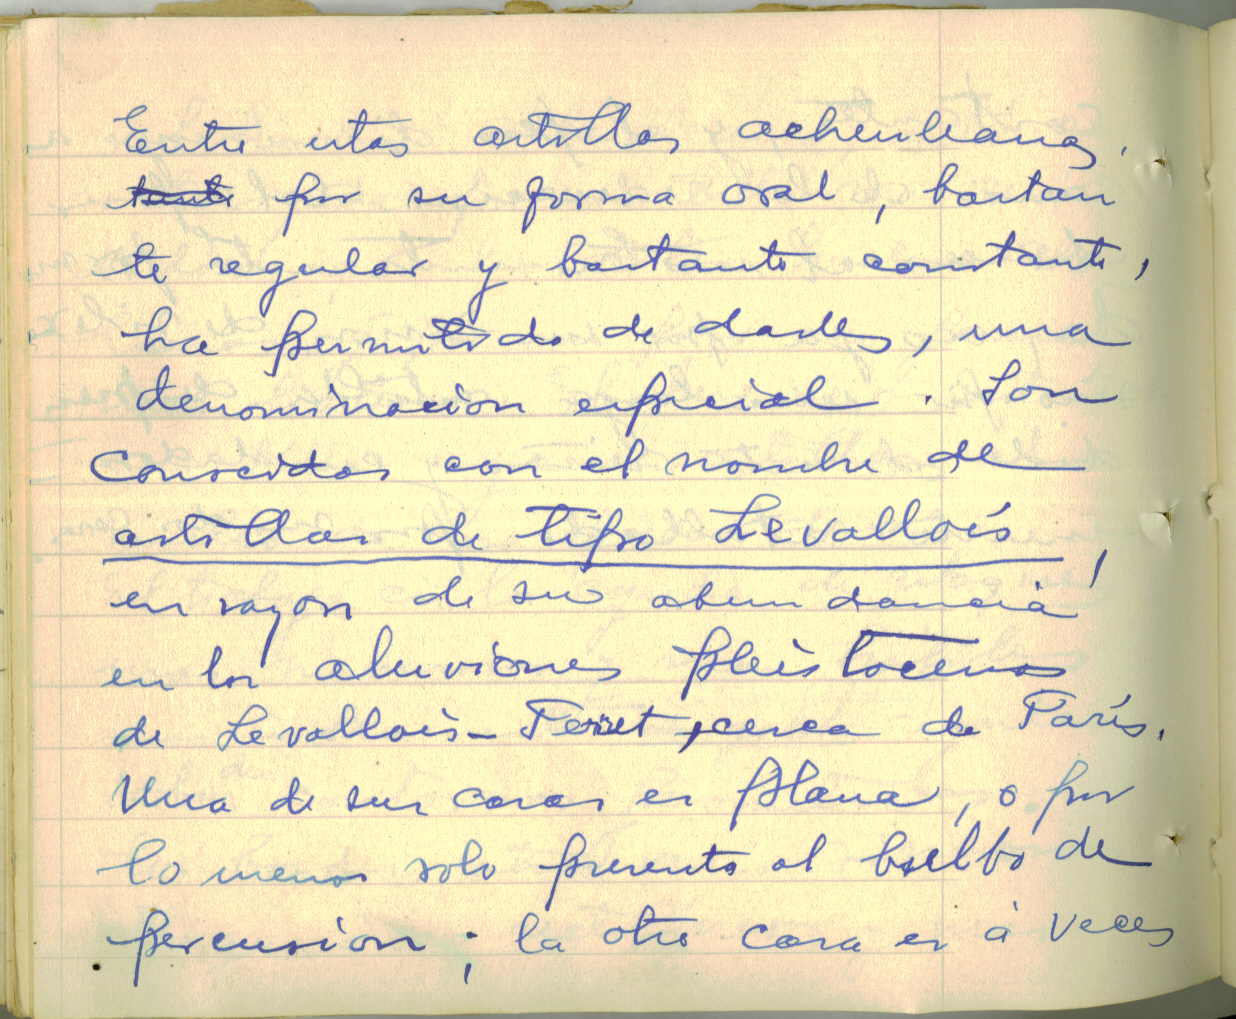 Entre estas astillas acheuleanas,
tante por su forma oval, bastan
te regular y bastante constante,
ha permitido de darles, una
denominacion especial. Son
conocidas con el nombre de
astillas de tipo Levallois,
en razon de su abundancia
en los aluviones pleistocenos
de Levallois-Peret, cerca de Paris.
Una de sus caras es plana, o por
lo menos solo presenta el bulbo de
percusion; la otra cara es á veces